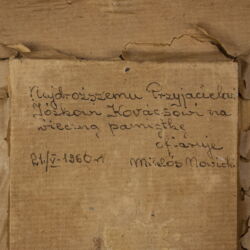 Najdroższemu Przyjacielowi
Kovácsowi na
wieczną pamiątkę
ofiaruje
21/V-1960 r. Miklós Nowicki